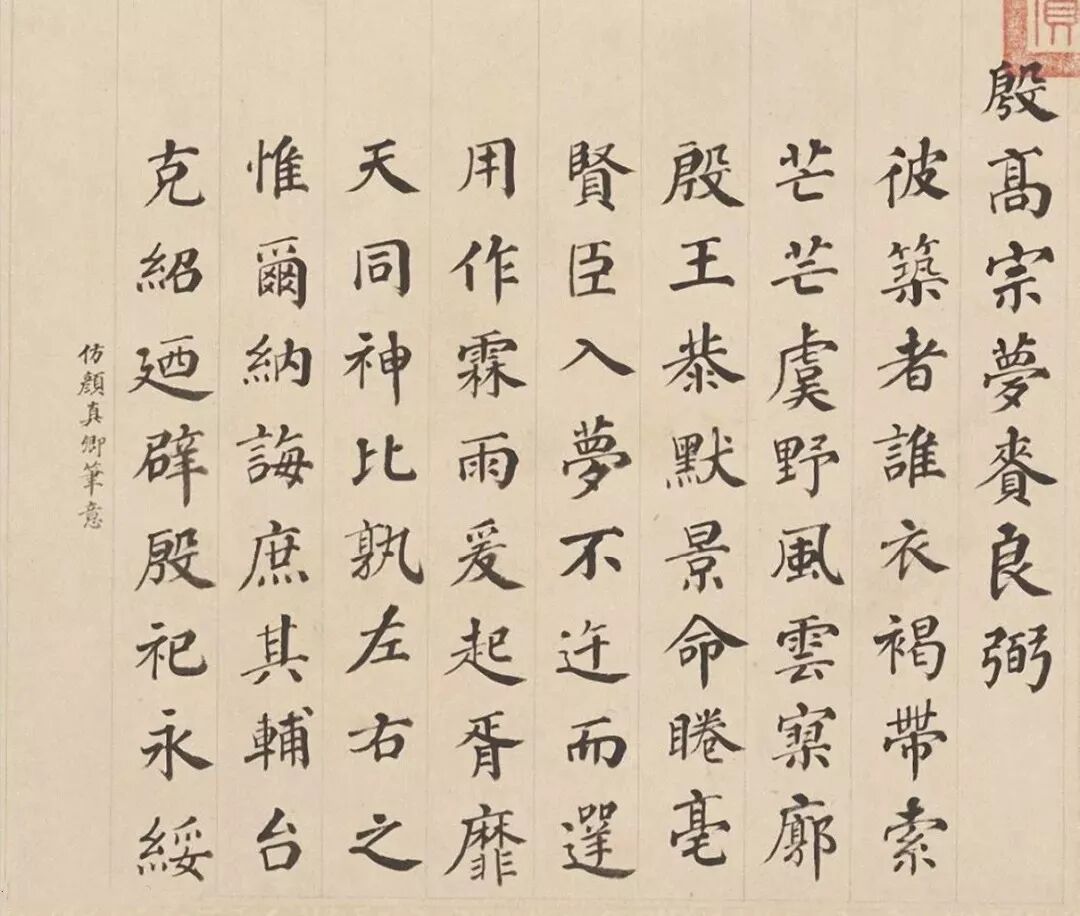 殷髙宗夢賚良弼
彼築者誰衣褐帶索
芒芒虞野風雲寥廓
殷王恭默景命睠亳
賢臣入夢不迕而遻
用作霖雨爰起胥靡
天同神比孰左右之
惟爾納誨庶其輔台
克紹廼辟殷祀永綏
仿顏真卿筆意